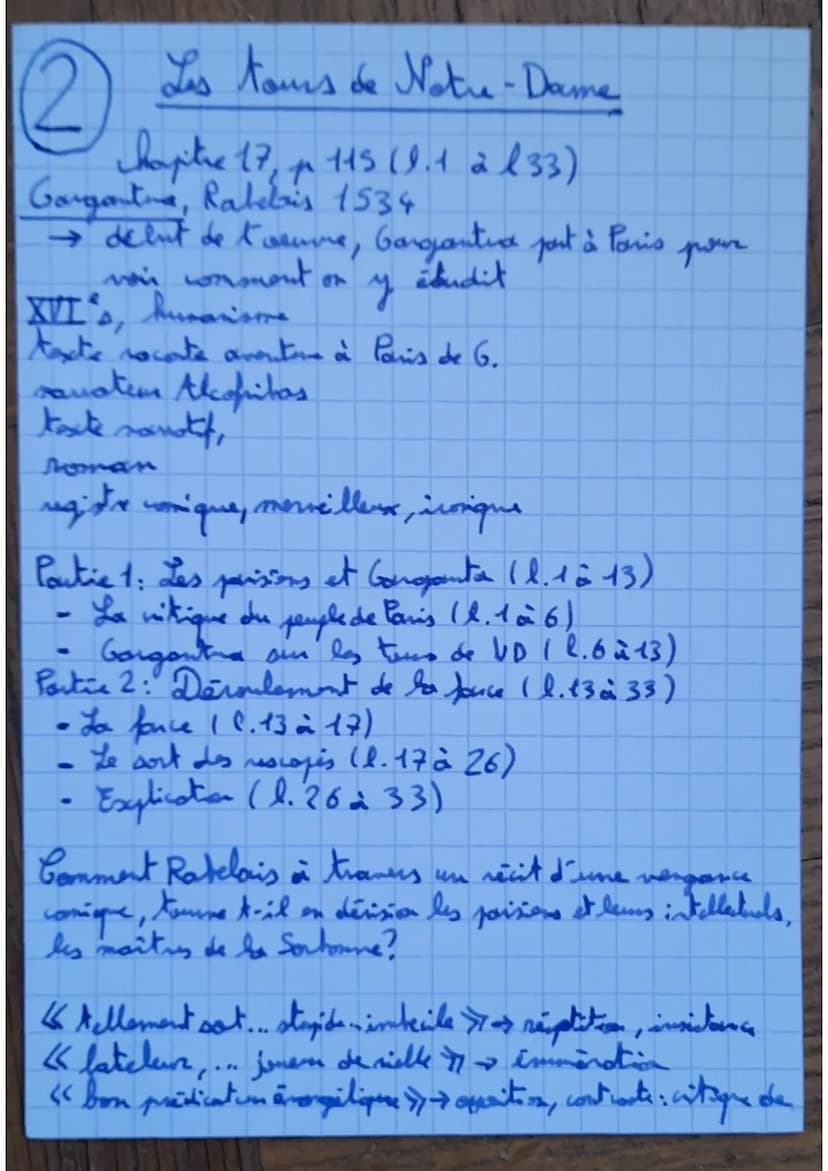 2
Les tours de Notre-Dame
Chapitre 17, p 115 (l.1 à l33)
Gargantua, Rabelais 1534
→ début de l'oeuvre, Gargantua part à Paris pour
voir comment on y étudit
XVI°s, humanisme
texte racate aventure à Paris de G.
narrateur Alcofribas
texte narratif,
roman
registre comique, merveilleux, ironique
Partie 1: Les parisiens et Gargantua (l.1 à 13)
- La critique du peuple de Paris (l.1 à 6)
- Gargantua sur les tours de ND (l.6 à 13)
Partie 2: Déroulement de la farce (l.13 à 33)
- La farce (l.13 à 17)
- Le sort des rescapés (l.17 à 26)
- Explication (l.26 à 33)
Comment Rabelais à travers un récit d'une vengance
comique, tourne t-il en dérision les parisiens et leurs intellectuels,
les maîtres de la Sorbonne?
« tellement sot... stupide... imbécile » → répétition, insistance
« bateleur, ... joueur de vielle » → énumération
« bon prédicateur évangélique » → opposition, contraste: critique de